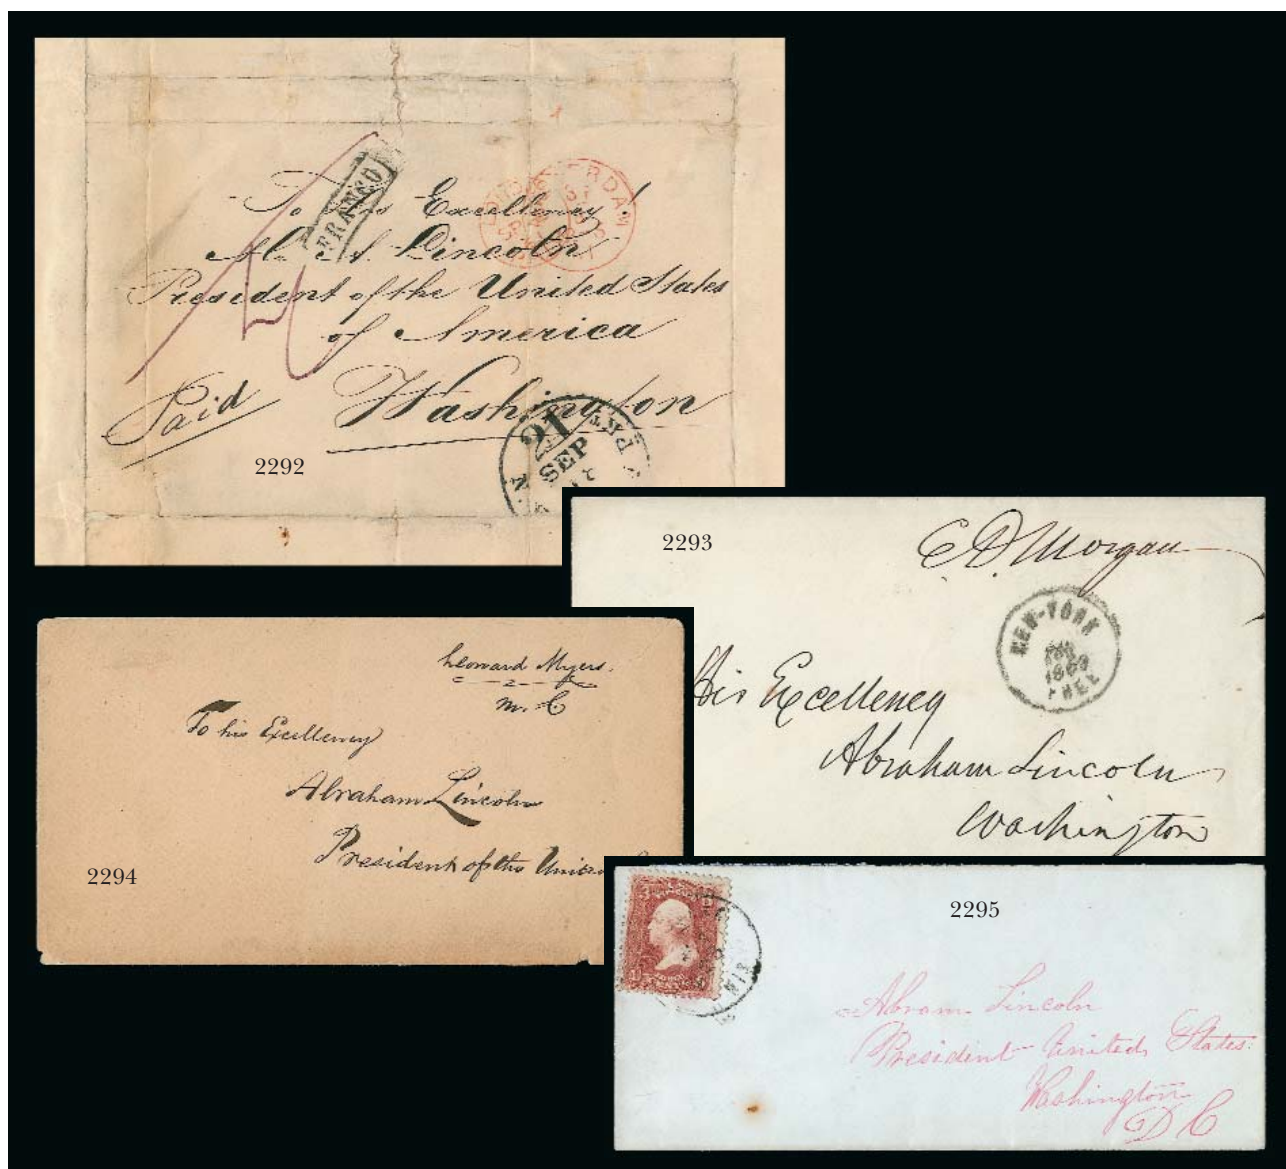 FRANCO
To His Excellency
A. Lincoln
President of the United States
of America
Paid Washington
21
SEP
PKT
2292
2293
E. D. Morgan
NEW-YORK
1863
FREE
His Excellency
Abraham Lincoln
Washington
Leonard Myers.
M. C
To his Excellency
Abraham Lincoln
President of the
2294
2295
Abram Lincoln
President United States.
Washington
D C